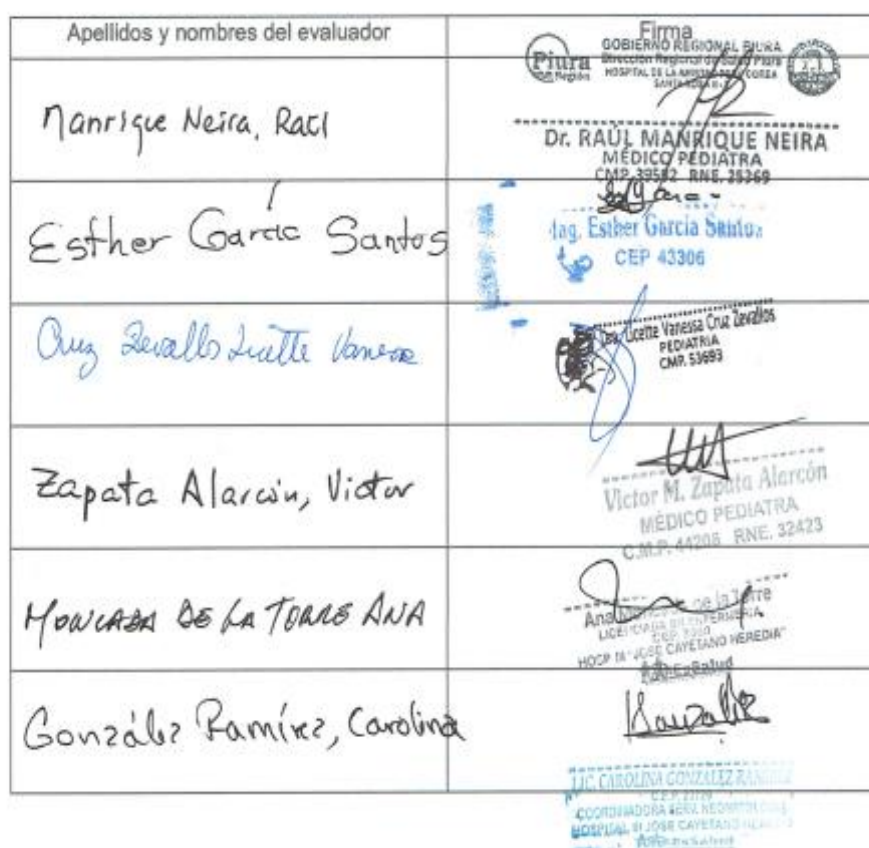 Apellidos y nombres del evaluador
Firma
Manrique Neira, Raúl
Piura
Región
GOBIERNO REGIONAL PIURA
Dirección Regional de Salud Piura
HOSPITAL DE LA AMISTAD PERÚ COREA
Dr. RAÚL MANRIQUE NEIRA
MÉDICO PEDIATRA
CMP. 39582 RNE. 25369
Esther García Santos
Esther García Santos
CEP 43306
Cruz Zevallos Licette Vanessa
Licette Vanessa Cruz Zevallos
PEDIATRIA
CMP. 53693
Zapata Alarcón, Victor
Victor M. Zapata Alarcón
MÉDICO PEDIATRA
C.M.P. 44206 RNE. 32423
MONCADA DE LA TORRE ANA
Ana de la Torre
LICENCIADA EN ENFERMERIA
"JOSE CAYETANO HEREDIA"
EsSalud
González Ramírez, Carolina
LIC. CAROLINA GONZALEZ RAMIREZ
COORDINADORA SERV.
HOSPITAL III JOSE CAYETANO